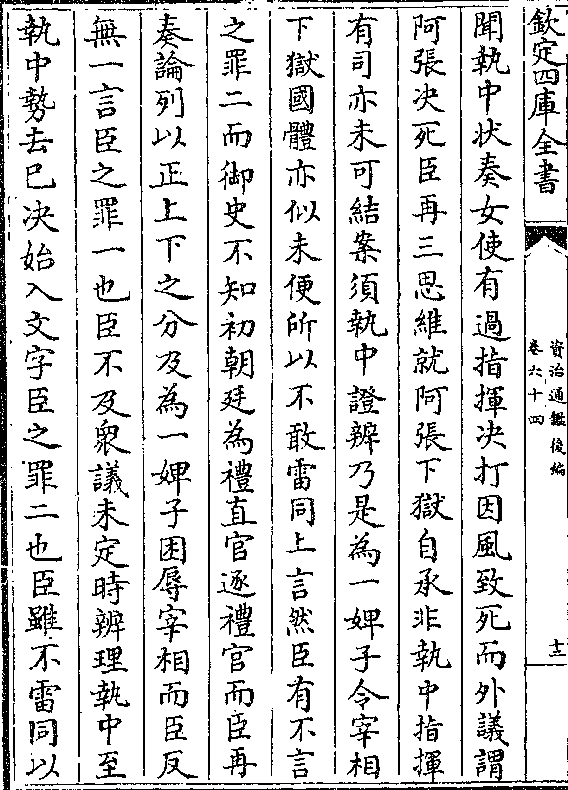 欽定四庫全書
資治通鑑後編
卷六十四
十三
聞執中状奏女使有過指揮决打因風致死而外議謂
阿張决死臣再三思維就阿張下獄自承非執中指揮
有司亦未可結案須執中證辨乃是為一婢子令宰相
下獄國體亦似未便所以不敢雷同上言然臣有不言
之罪二而御史不知初朝廷為禮直官逐禮官而臣再
奏論列以正上下之分及為一婢子困辱宰相而臣反
無一言臣之罪一也臣不及衆議未定時辨理執中至
執中勢去已决始入文字臣之罪二也臣雖不雷同以